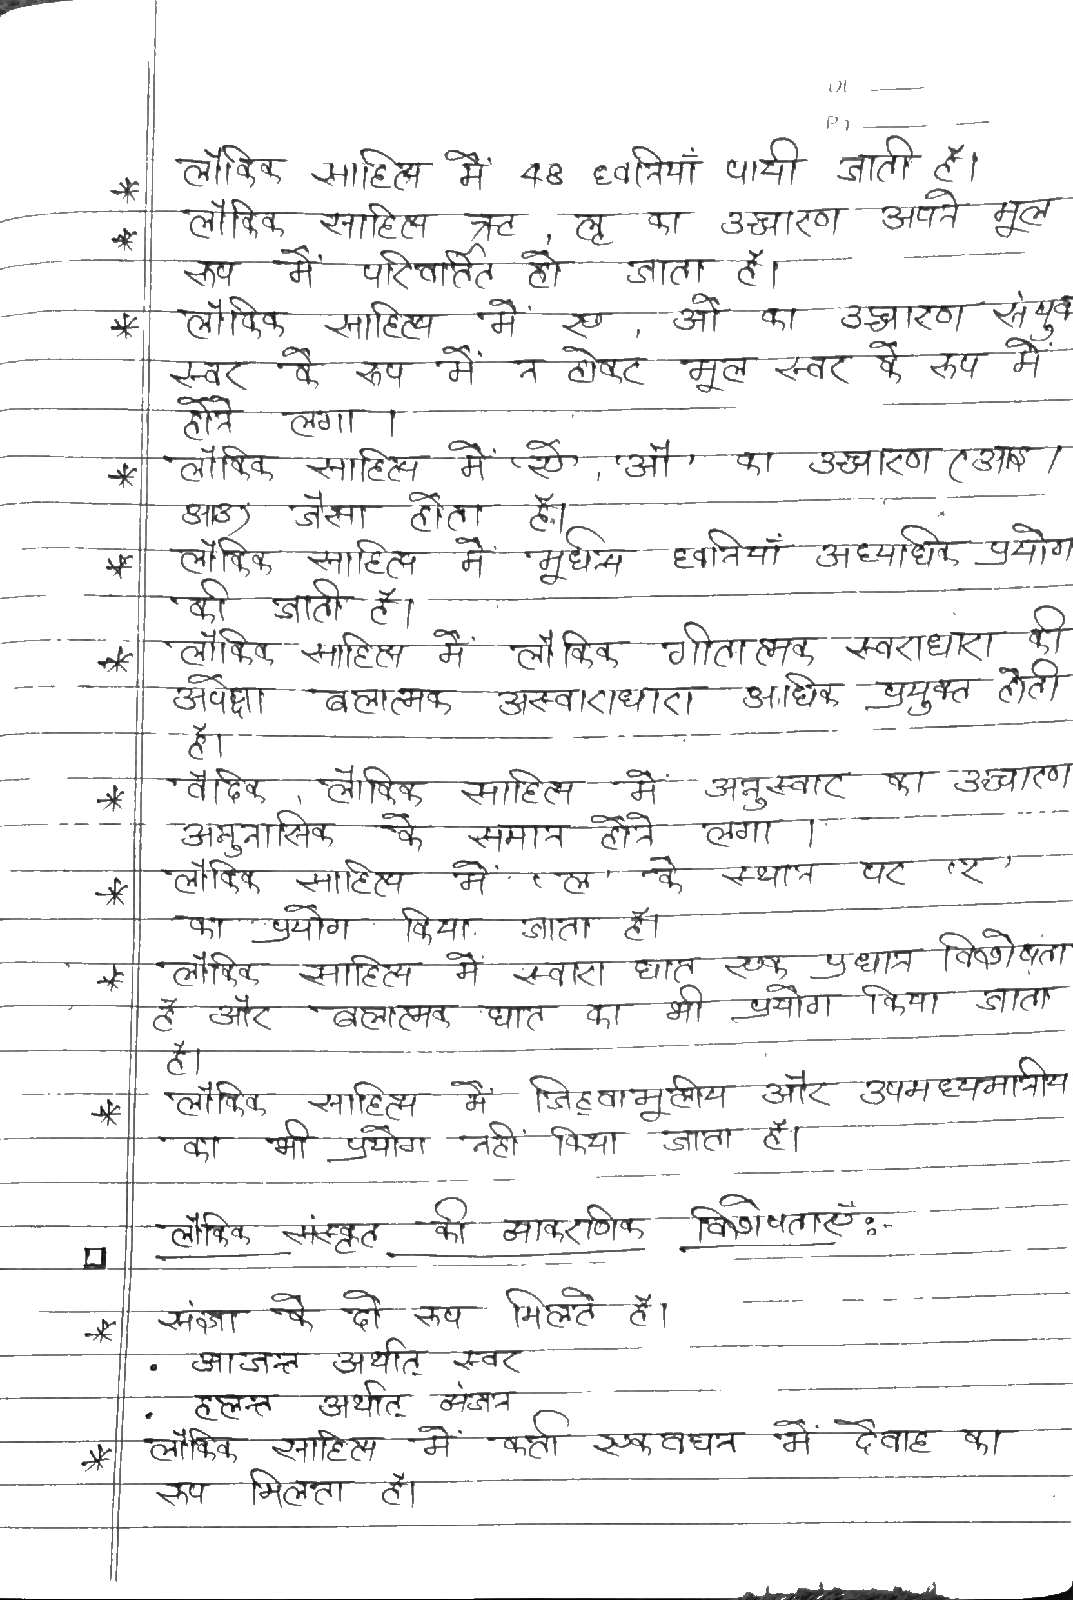 * लौकिक साहित्य में 48 ध्वनियाँ पायी जाती हैं।
* लौकिक साहित्य ऋट, लृ का उच्चारण अपने मूल
रूप में परिवर्तित हो जाता है।
* लौकिक साहित्य में ए, ओ का उच्चारण संयुक्त
स्वर के रूप में न होकर मूल स्वर के रूप में
होने लगा।
* लौकिक साहित्य में 'ऐ', 'औ' का उच्चारण (आइ/
आउ) जैसा होता है।
* लौकिक साहित्य में मूर्धन्य ध्वनियाँ अध्याधिक प्रयोग
की जाती है।
* लौकिक साहित्य में लौकिक गीतात्मक स्वराधारा की
अपेक्षा बलात्मक अस्वाराधारा अधिक प्रयुक्त होती
है।
* वैदिक, लौकिक साहित्य में अनुस्वार का उच्चारण
अमुनासिक के समान होने लगा।
* लौकिक साहित्य में 'ल' के स्थान पर 'र'
का प्रयोग किया जाता है।
* लौकिक साहित्य में स्वारा घात एक प्रधान विशेषता
है और बलात्मक घात का भी प्रयोग किया जाता
है।
* लौकिक साहित्य में जिह्वामूलीय और उपमध्यमानीय
का भी प्रयोग नहीं किया जाता है।
लौकिक संस्कृत की व्याकरणिक विशेषताएँ:-
* संज्ञा के दो रूप मिलते हैं।
• आजन्त अर्थात् स्वर
• हलन्त अर्थात् व्यंजन
* लौकिक साहित्य में कर्ता एकवचन में देवाह का
रूप मिलता है।